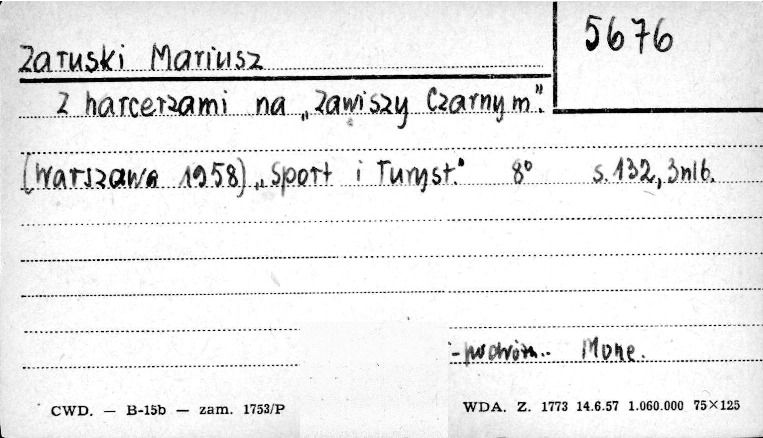 5676
Zaruski Mariusz
Z harcerzami na „Zawiszy Czarnym".
(Warszawa 1958) „Sport i Turyst." 8° s. 132, 3 nlb.
Morze.
CWD. — B-15b — zam. 1753/P
WDA. Z. 1773 14.6.57 1.060.000 75×125